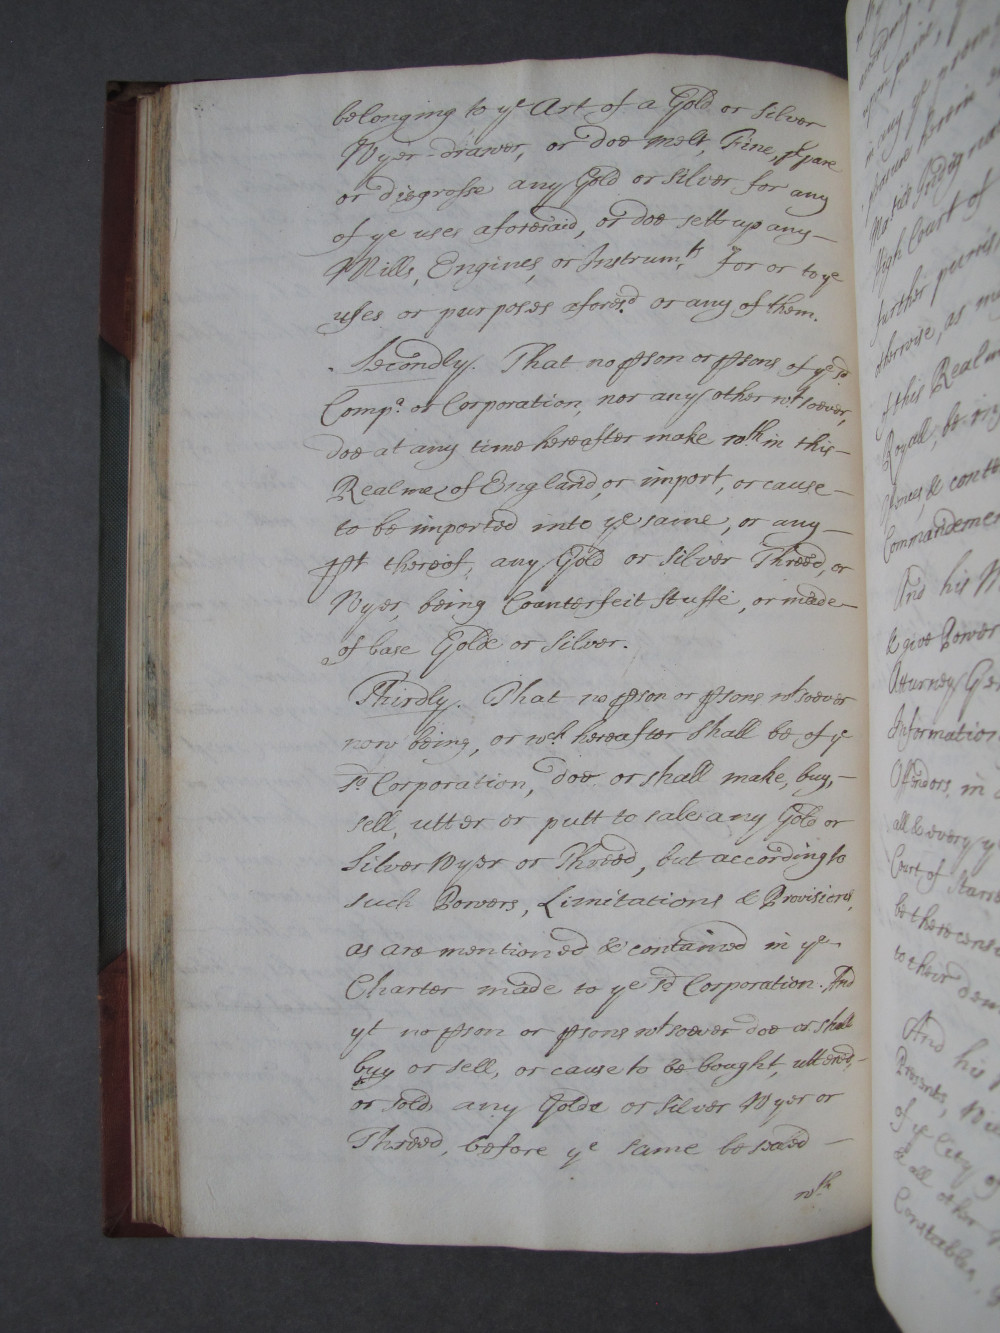 belonging to ye Art of a Gold or Silver
Wyer-drawer, or doe melt, Fine, p̱pare
or disgrosse any Gold or Silver for any
of ye uses aforesaid, or doe sett up any—
Mills, Engines, or Instrumts. for or to ye
uses or purposes aforesd. or any of them.
Secondly. That no p̱son or p̱sons of ye sd.
Compa. or Corporation, nor any other wtsoever,
doe at any time hereafter make wthin this—
Realme of England, or import, or cause—
to be imported into ye same, or any—
p̱t thereof, any Gold or Silver Threed, or
Wyer, being Counterfeit Stuffe, or made—
of base Golde or Silver.
Thirdly. That no p̱son or p̱sons wtsoever
now being, or wch hereafter shall be of ye
sd. Corporation, doe or shall make, buy,—
sell, utter or putt to sale any Gold or
Silver Wyer or Threed, but according to
such Powers, Limitations & Provisions,
as are mentioned & contained in ye
Charter made to ye sd. Corporation. And
yt no p̱son or p̱sons wtsoever doe or shall
buy or sell, or cause to be bought, uttered,—
or sold any Golde or Silver Wyer or
Threed, before ye same be sealed—
wth
upon paine,
in any
High Court of
further punis
otherwise, as m
of this Realm
Royall, be in
& cont
Commandeme
And his M
& give Power
Atturney Ge
Information
Offendors, in
all & every y
Court of Starr
be there cens
to their dem
And his
Presents,
of ye City of
& all other
Constables,